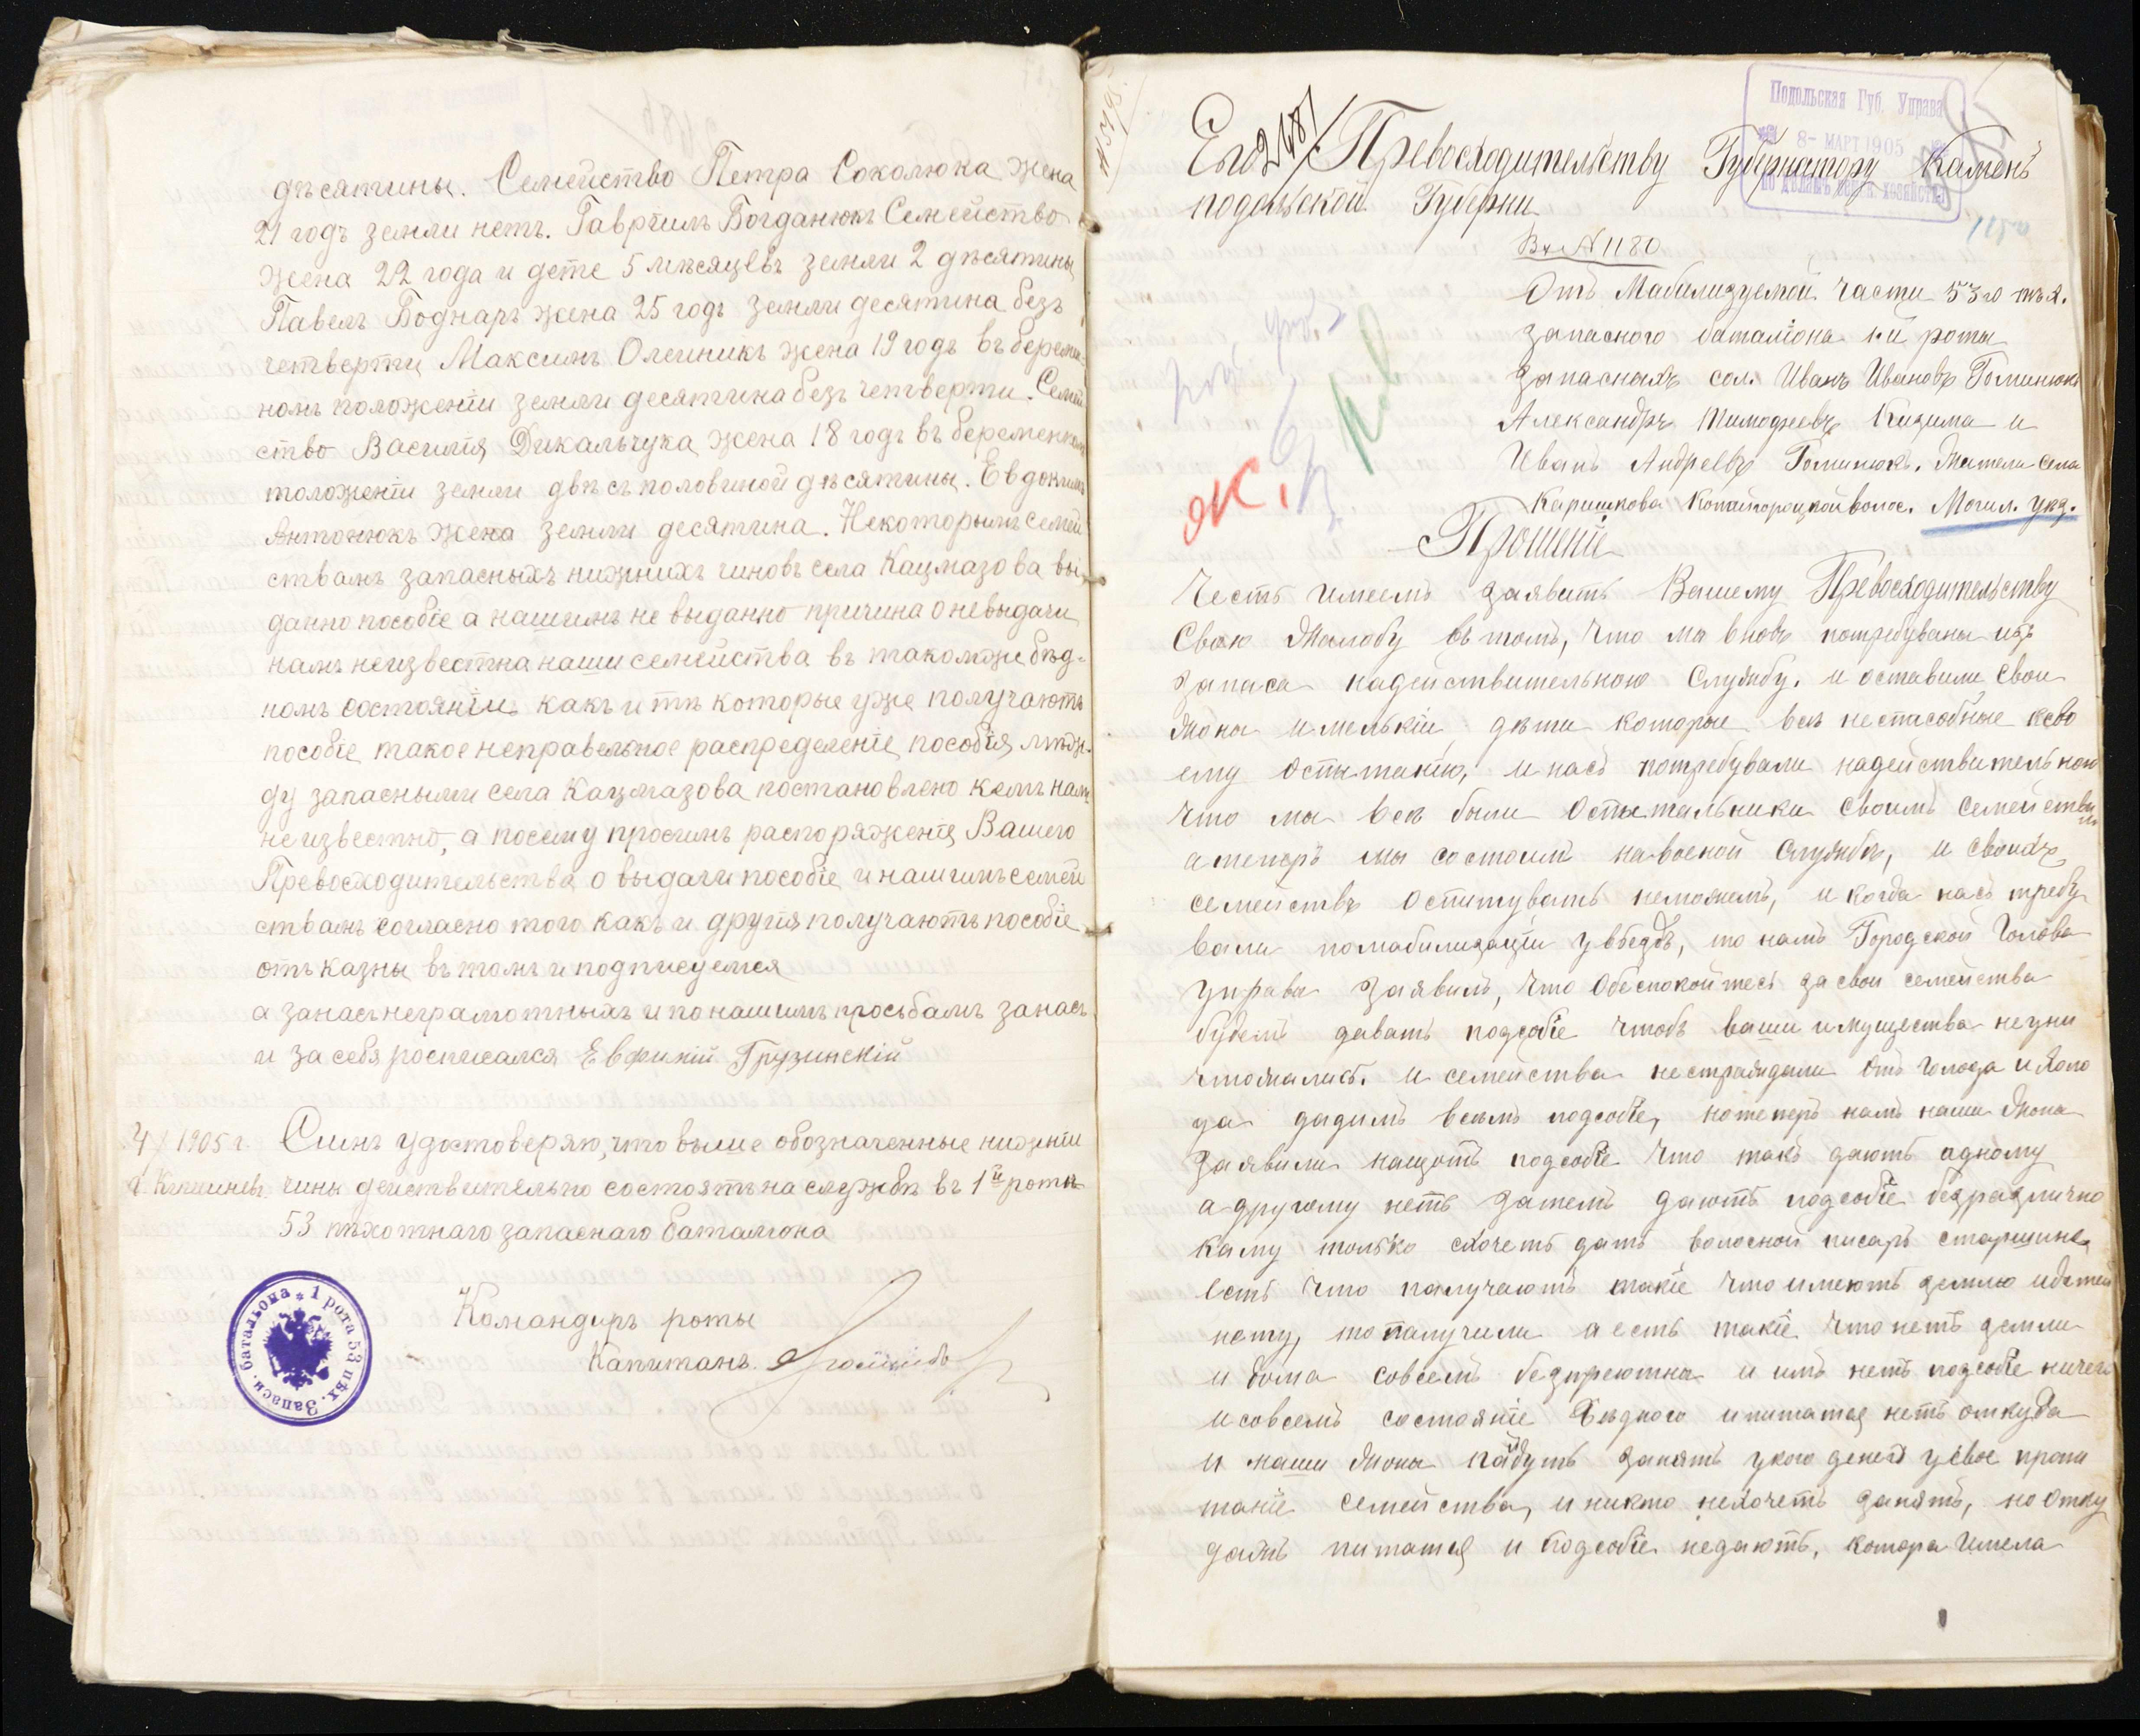 дѣсятины. Семейство Петра Соколюка жена
21 годъ земли нетъ. Гавріилъ Богданюкъ Семейство
жена 22 года и дете 5 мѣсяцевъ земли 2 дѣсятины
Павелъ Боднаръ жена 25 годъ земли десятина безъ
четверти, Максимъ Олейникъ жена 19 годъ въ береме-
номъ положеніи земли десятина безъ четверти. Семей
ство Василія Дикальчука жена 18 годъ въ беременномъ
положеніи земли двѣ съ половиной дѣсятины. Евдокимъ
Антонюкъ жена земли десятина. Некоторымъ семей
ствамъ запасныхъ нижнихъ чиновъ села Кацмазова вы-
данно пособіе а нашимъ не выданно причина о невыдачи
намъ неизвестна наши семейства въ такомже бѣд-
номъ состояніи какъ и тѣ которые уже получаютъ
пособіе такое неправельное распределеніе пособія, межн-
ду запасными села Кацмазова постановлено кемъ намъ
не известно, а посему просимъ распоряженія Вашего
Превосходительства о выдачи пособіе и нашимъ семей
ствамъ согласно того какъ и другія получаютъ пособіе
отъ казны въ томъ и подписуемся
а занасъ неграмотныхъ и по нашимъ просьбамъ занасъ
и за себя росписался Евфимій Грузинскій
4/ 1905 г. Симъ удостоверяю, что выше обозначенные нижніи
г. Кишиневъ. чины действительно состоятъ на службѣ въ 1й ротѣ
53 пѣхотнаго запаснаго баталіона
Командиръ роты
Капитанъ
1 рота 53 пѣх. Запасн. батальона
Подольская Губ. Управа
8- МАРТ 1905
по дѣламъ мѣстн. хозяйства
Его 2487 Превосходительству Губернатору Каменъ
подольской Губерни
Вх № 1180
Отъ Мабилизуемой Части 53го пѣх.
запасного баталіона 1-й роты
Запасныхъ сол. Иванъ Ивановъ Гоминюкъ
Александръ Тимофеевъ Кизима и
Иванъ Андреевъ Гоминюкъ. Жители села
Каришкова Копайгородкой волос. Могил. уѣз.
Прошеніе
Честь имеемъ заявить Вашему Превосходительству
Сваю Жалобу въ томъ, что мы вновь потребуваны изъ
запаса надействительною Службу. и оставили свои
жоны и мелькіи дѣти которые всѣ неспасобные ксво
ему оспытанію, и насъ потребували надействительною
что мы всѣ были Оспытальники своимъ семейства
ми
атеперъ мы состоимъ навоеной службы, и своихъ
семействъ оспитувать неможемъ, и когда насъ требу
вали помабилизаціи уѣздъ, то намъ Городской Голова
управа заявилъ, что Обеспокойтесь за свои семейства
будемъ давать подсобіе чтобъ ваши имущества неуни
чтожались. и семейства нестраждали отъ голода и холо
да дадимъ всѣмъ подсобіе, нотеперъ намъ наши жоны
заявили нащотъ подсобіе что такъ даютъ одному
а другому нетъ затемъ даютъ подсобіе безразлично
каму только схочетъ дать волосной писаръ старшина
есть что палучаютъ такіе что имеютъ землю идѣтей
нету, то палучили а есть такіе что нетъ земли
и дома совсемъ безпреютна и имъ нетъ подсобіе ничего
и совсемъ состояніе бѣдного ипитатця нетъ откуда
и наши жоны пайдуть занять укого денегъ усвое пропи
таніе семейства, и никто нехочетъ занять, но отку
даже питатця и подсобіе недаютъ, котора имела